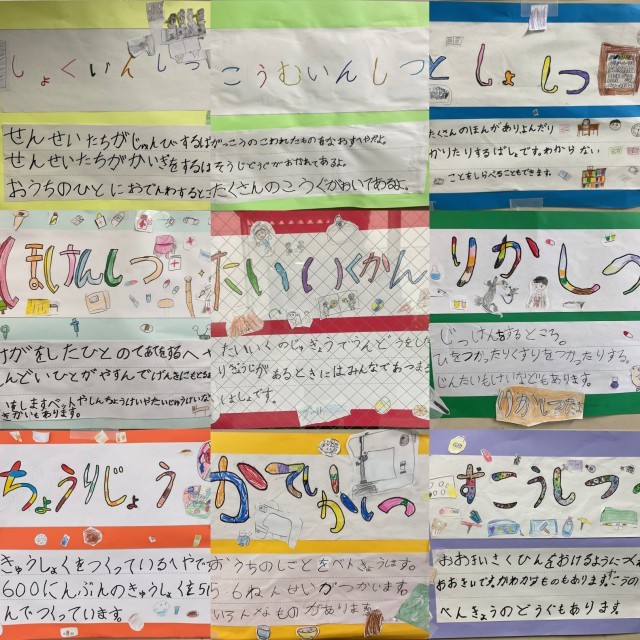 しょくいんしつ
せんせいたちがじゅんびするば
せんせいたちがかいぎをするは
おうちのひとにおでんわするとこ
こうむいんしつ
がっこうのこわれたものをなおすへやだよ。
そうじどうぐがおかれてあるよ。
たくさんのこうぐがおいてあるよ。
としょしつ
たくさんのほんがありよんだり
かりたりするばしょです。わからない
ことをしらべることもできます。
ほけんしつ
けがをしたひとのてあてをするへや
んどいひとがやすんでげんきにもどる
いをしますベットやしんちょうけいやたいじゅうけいな
きかいもあります。
たいいくかん
たいいくのじゅぎょうでうんどうをした
りぎょうじがあるときにはみんなであつまる
ばしょです。
りかしつ
じっけんをするところ。
ひをつかったりくすりをつかったりする。
じんたいもけいなどもあります。
りかしつだ
ちょうりじょう
きゅうしょくをつくっているへやです
600にんぶんのきゅうしょくを5
んでつくっています。
かていかしつ
おうちのしごとをべんきょうします。
5 6ねんせいがつかいます。
いろんなものがあります。
ずこうしつ
おおきいさくひんをおけるように
おおきいです。かわかすものもあります。
べんきょうのどうぐもあります